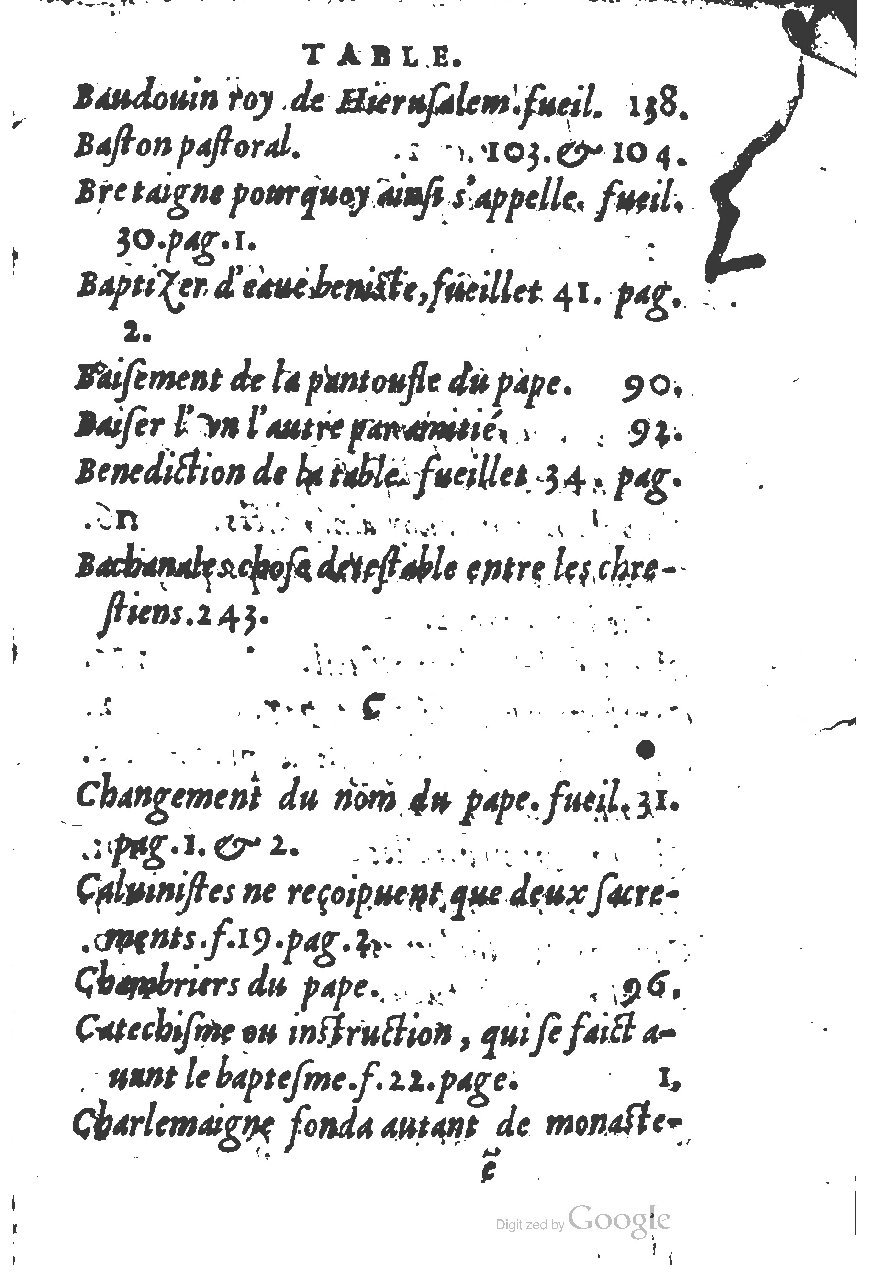 TABLE.
Baudouin roy de Hieruſalem.fueil. 138.
Baſton paſtoral. 103.& 104.
Bretaigne pourquoy ainſi s'appelle. fueil.
30.pag.1.
Baptizer d'eaue beniſte,fueillet 41. pag.
2.
Baiſement de la pantoufle du pape. 90.
Baiſer l'vn l'autre par amitié. 92.
Benediction de la table. fueillet 34. pag.
Bachanales choſe deteſtable entre les chre-
ſtiens.243.
C
Changement du nom du pape. fueil.31.
pag.1.& 2.
Caluiniſtes ne reçoipuent que deux ſacre-
ments.f.19.pag.2.
Chambriers du pape. 96.
Catechiſme ou inſtruction, qui ſe faict a-
uant le bapteſme.f.22.page. 1,
Charlemaigne fonda autant de monaſte-
ẽ
Digitized by Google